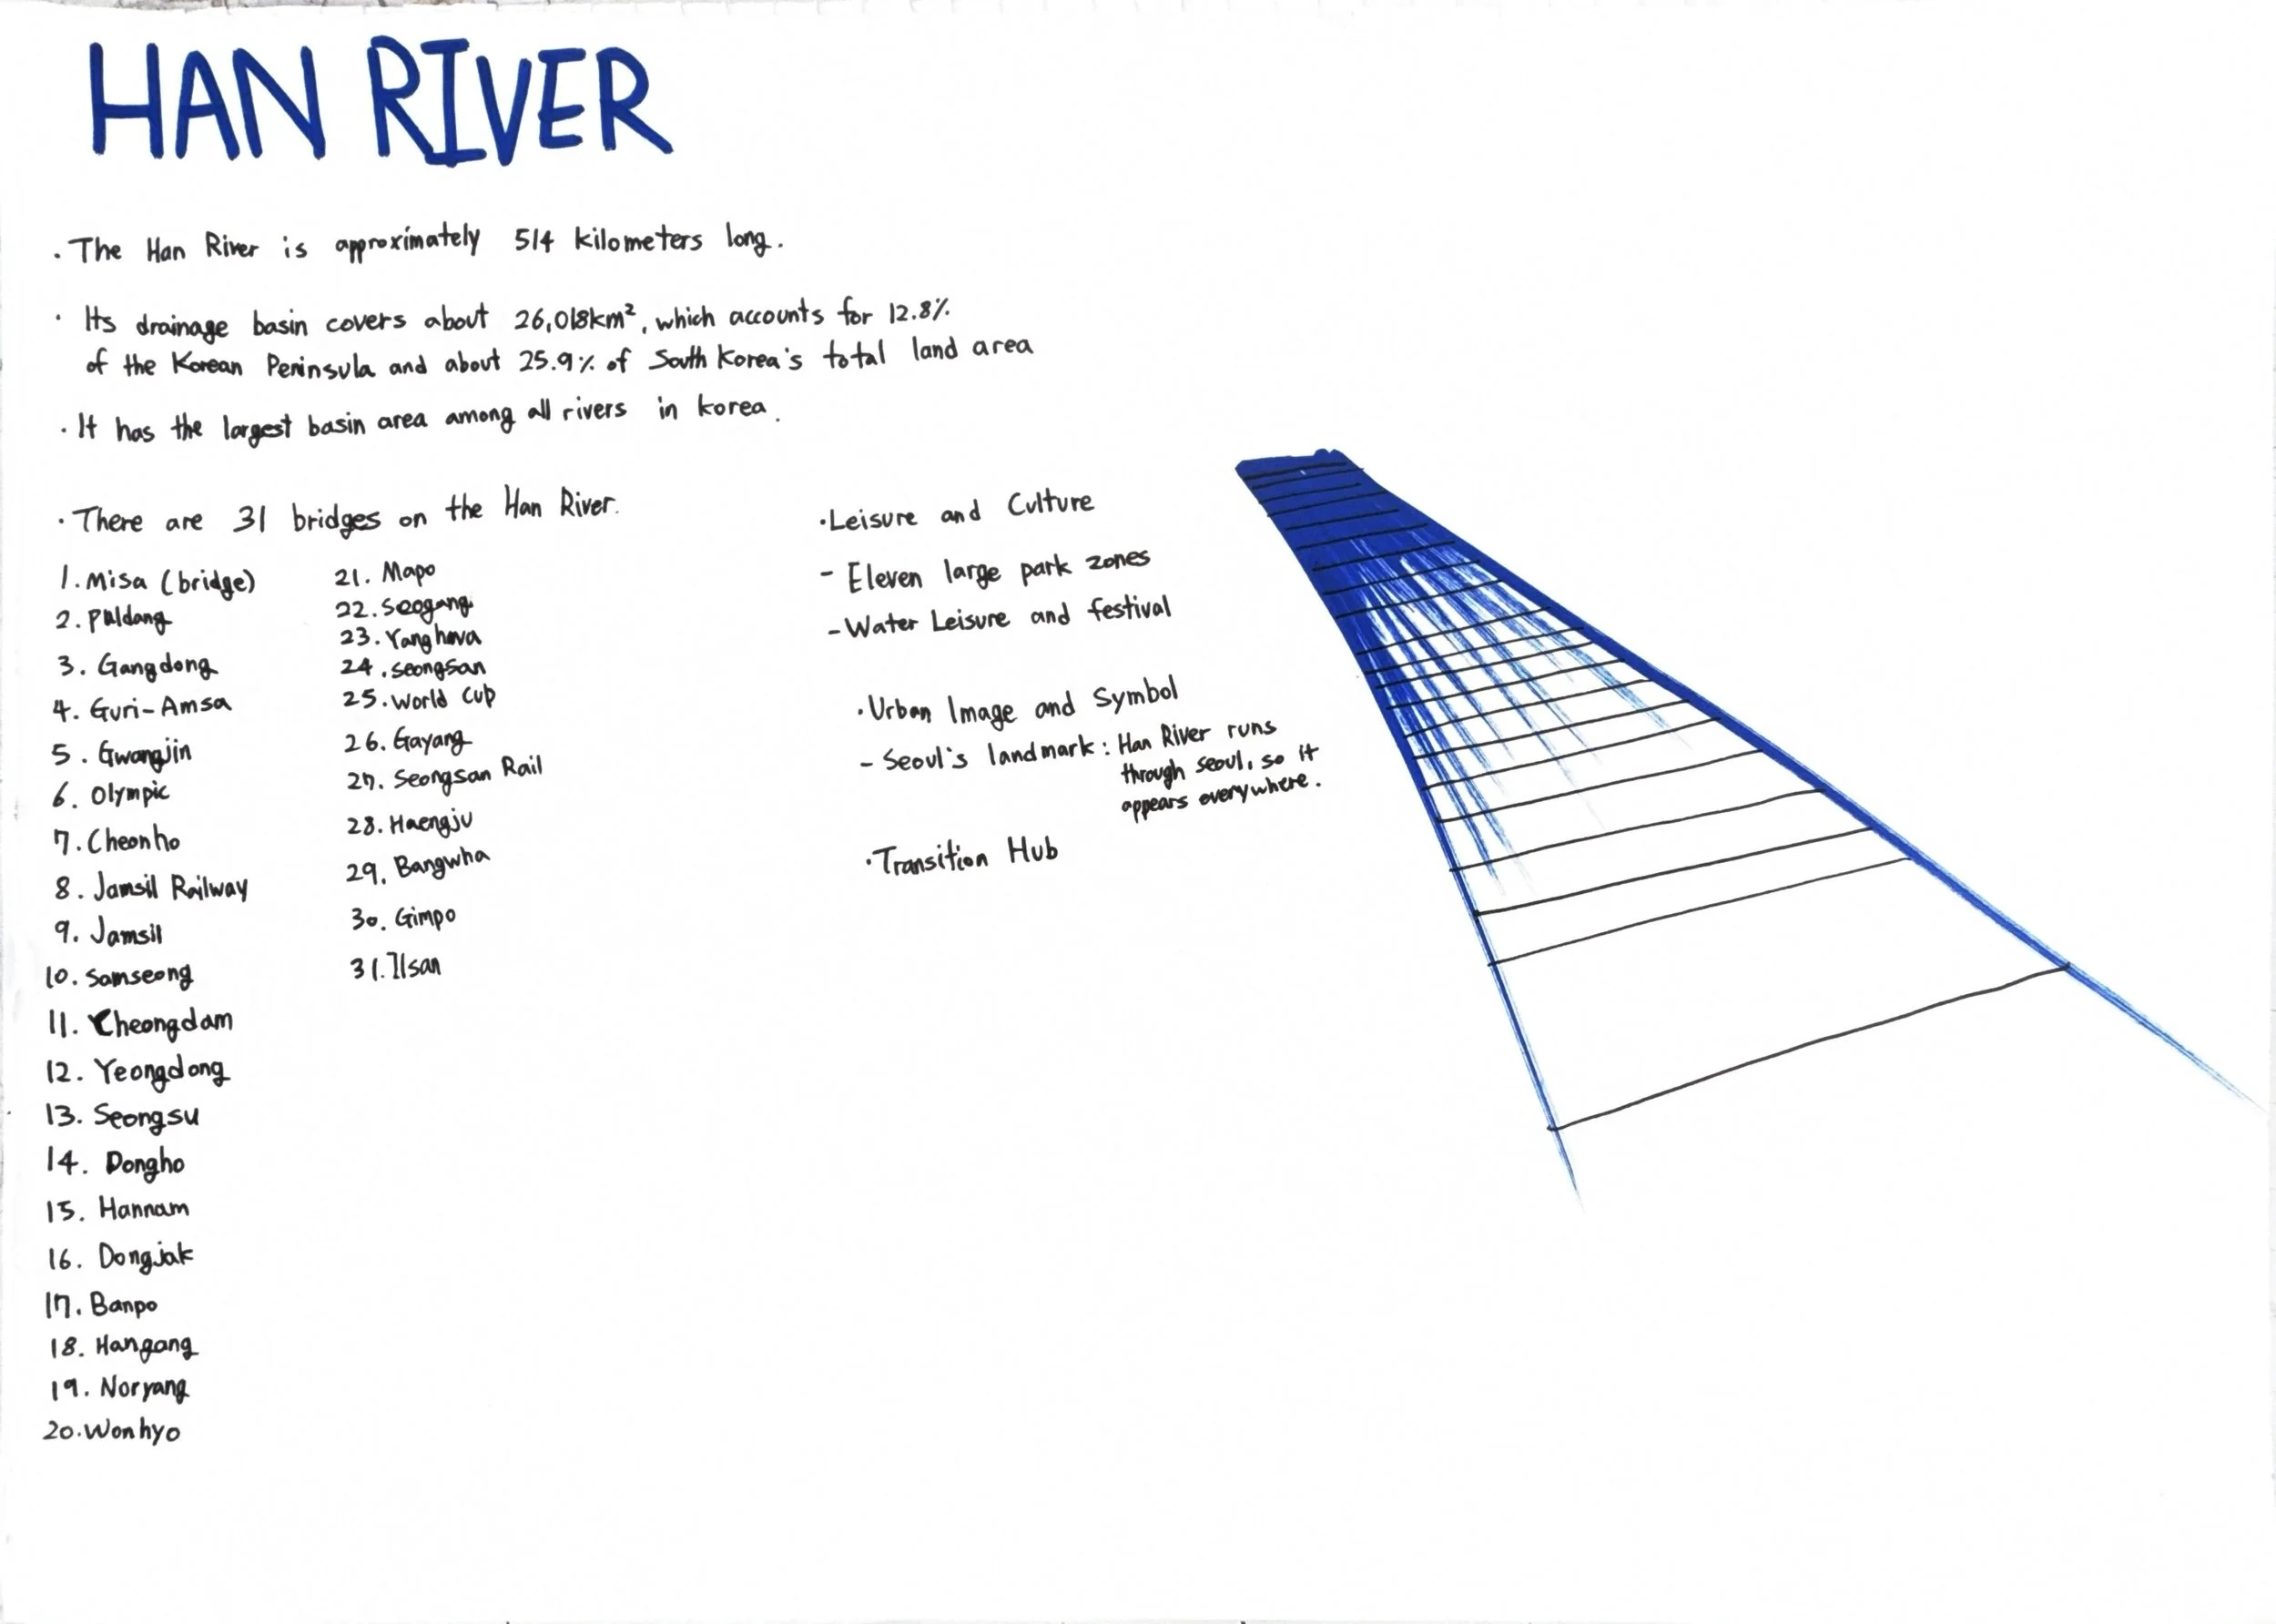 HAN RIVER
· The Han River is approximately 514 kilometers long.
· Its drainage basin covers about 26,018km², which accounts for 12.8%
of the Korean Peninsula and about 25.9% of South Korea's total land area
· It has the largest basin area among all rivers in korea.
· There are 31 bridges on the Han River.
1. Misa (bridge)
2. Paldang
3. Gangdong
4. Guri-Amsa
5. Gwangjin
6. Olympic
7. Cheonho
8. Jamsil Railway
9. Jamsil
10. Samseong
11. Cheongdam
12. Yeongdong
13. Seongsu
14. Dongho
15. Hannam
16. Dongjak
17. Banpo
18. Hangang
19. Noryang
20. Wonhyo
21. Mapo
22. Seogang
23. Yanghwa
24. Seongsan
25. World Cup
26. Gayang
27. Seongsan Rail
28. Haengju
29. Bangwha
30. Gimpo
31. Ilsan
· Leisure and Culture
- Eleven large park zones
- Water Leisure and festival
· Urban Image and Symbol
- Seoul's landmark: Han River runs
through seoul, so it
appears everywhere.
· Transition Hub